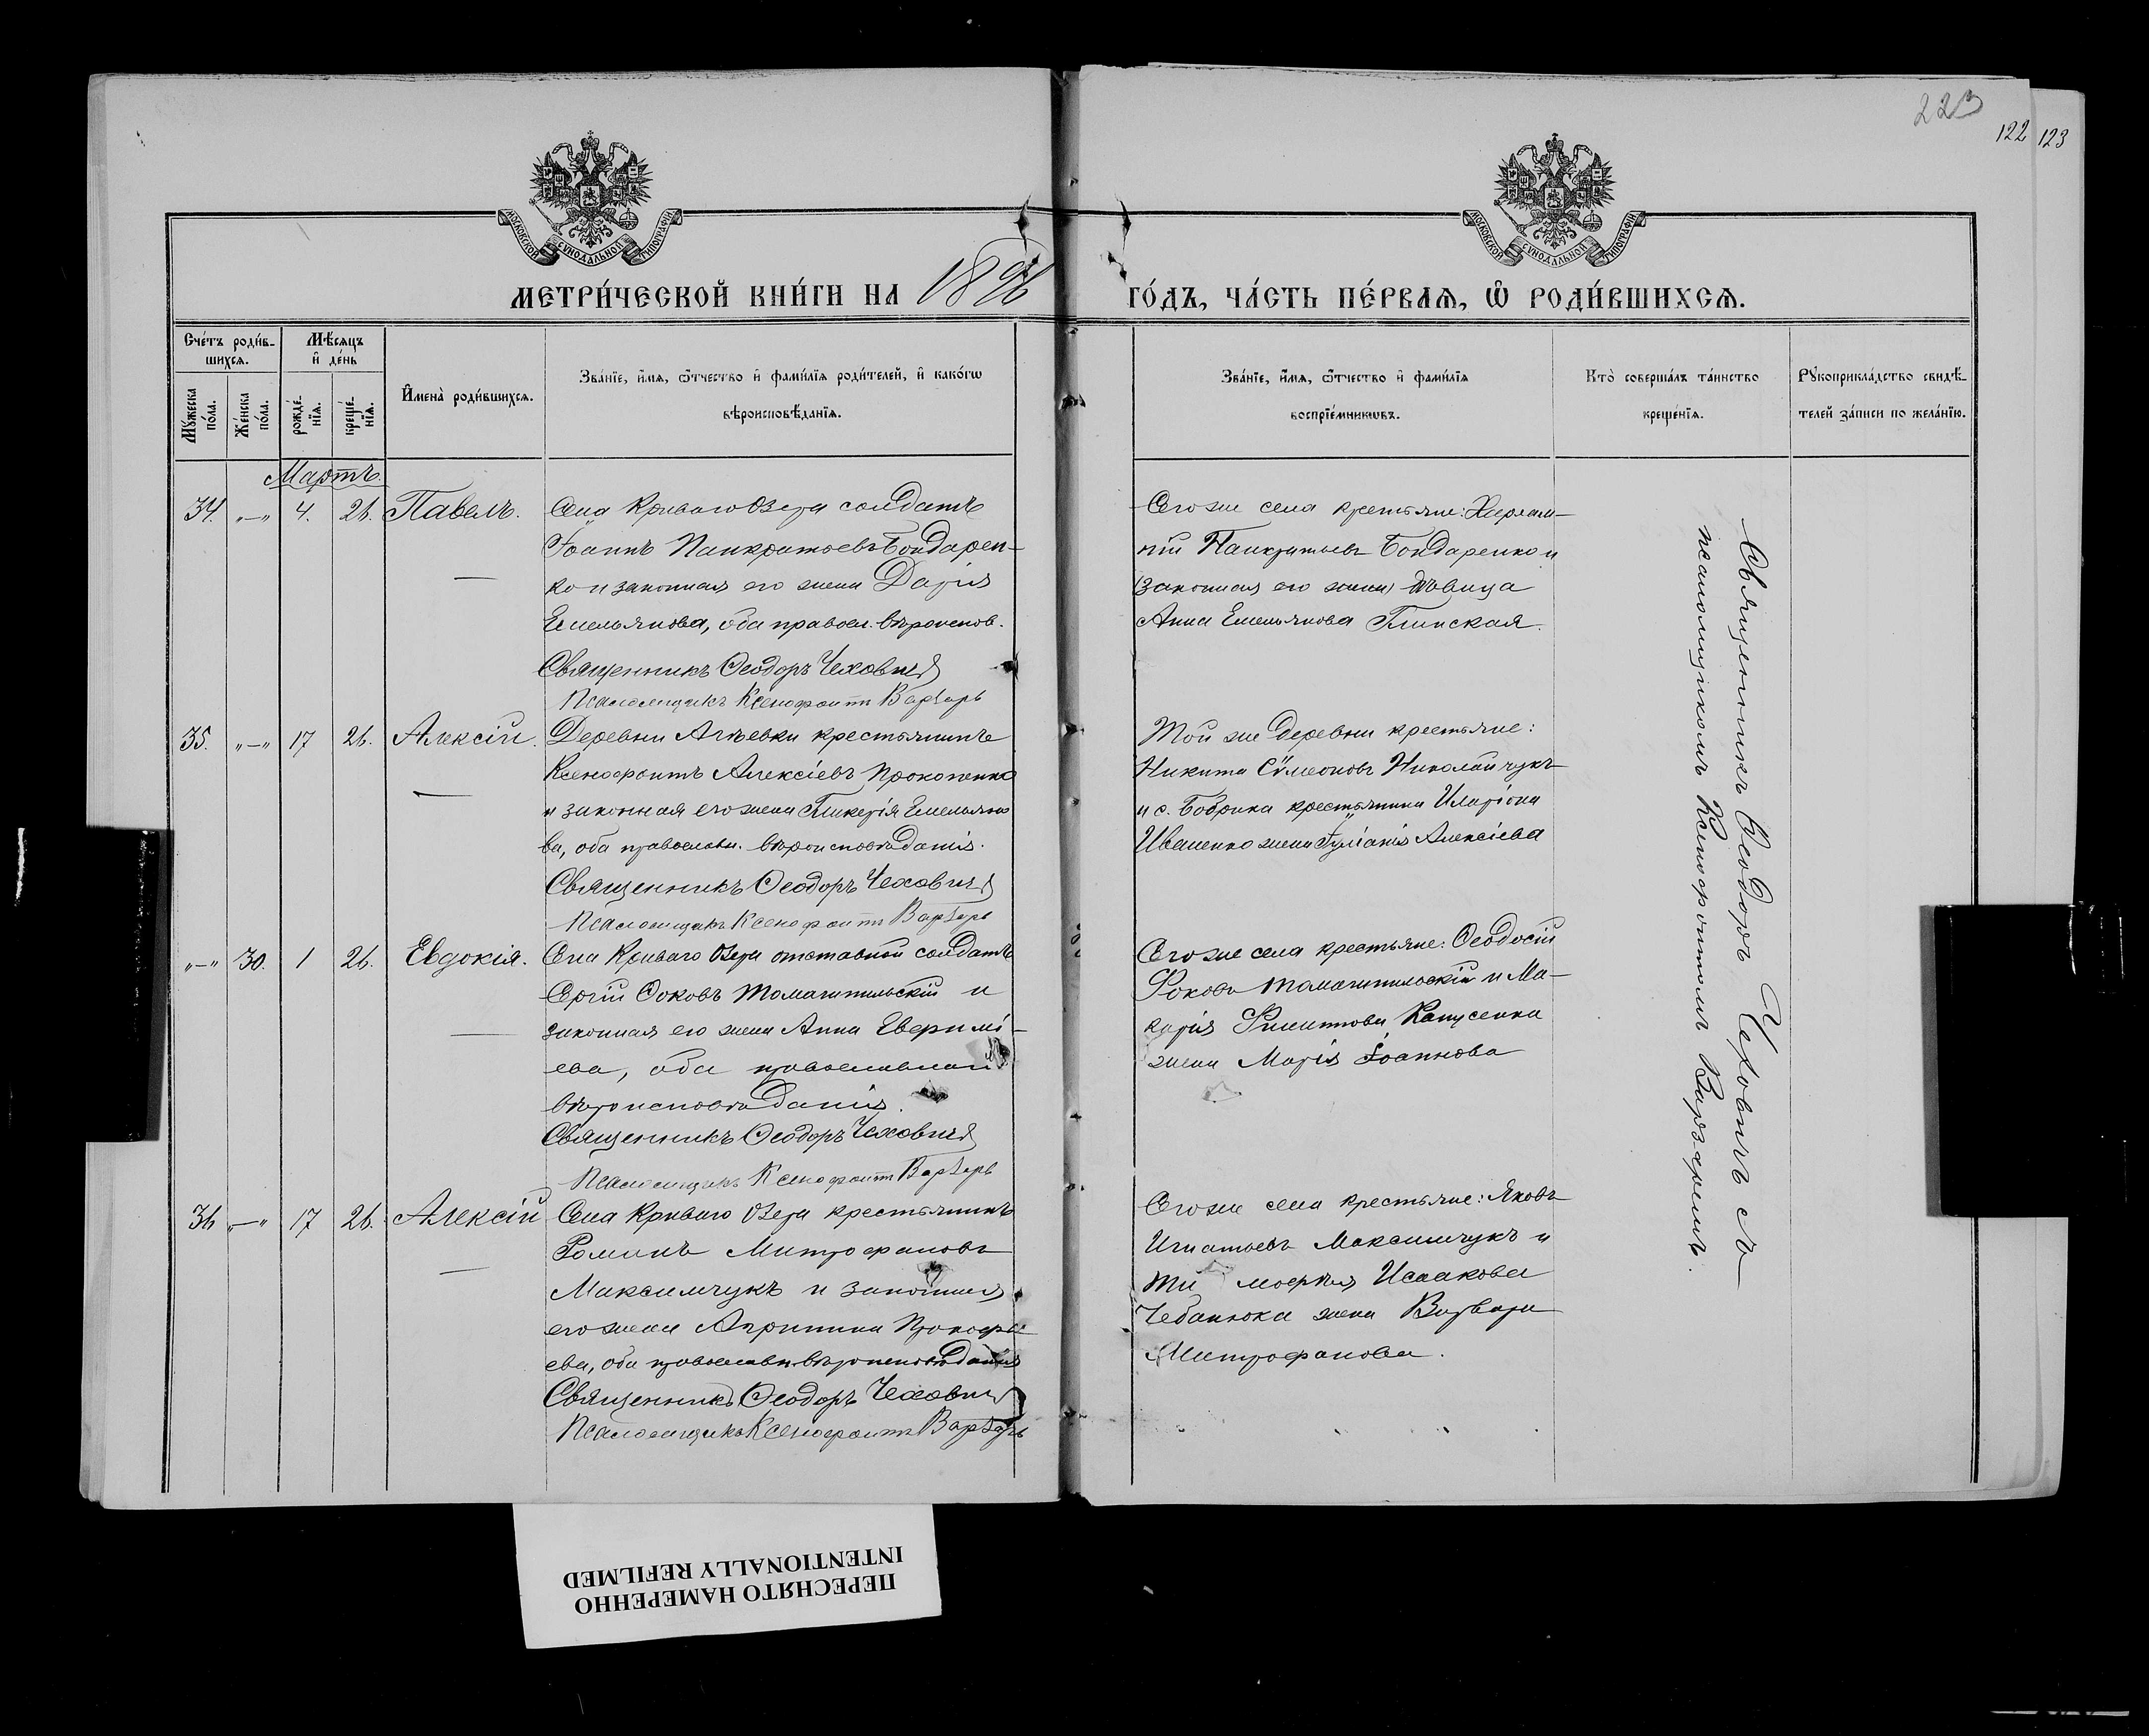 223
122 123
МОСКОВСКОЙ СѴНОДАЛЬНОЙ ТИПОГРАФІИ
МОСКОВСКОЙ СѴНОДАЛЬНОЙ ТИПОГРАФІИ
МЕТРИ́ЧЕСКОЙ КНИ́ГИ НА 1896 ГО́ДЪ, ЧА́СТЬ ПЕ́РВАѦ, Ѽ РОДИ́ВШИХСѦ.
Сче́тъ роди́в-
шихсѧ.
Мѣ́сѧцъ
и҆ де́нь
Мꙋ́жеска
по́ла.
Же́нска
по́ла.
рожде́-
нїѧ.
креще́-
нїѧ.
И҆мена̀ роди́вшихсѧ.
Зва́нїе, и҆́мѧ, ѻ҆́тчество и҆ фами́лїѧ роди́телей, и҆ како́гѡ
вѣроисповѣ́данїѧ.
Зва́нїе, и҆́мѧ, ѻ҆́тчество и҆ фами́лїѧ
воспрїе́мникѡвъ.
Кто̀ соверша́лъ та́инство
креще́нїѧ.
Рꙋкоприкла́дство свидѣ́-
телей за́писи по жела́нїю.
Мартъ.
34. „—„ 4. 26. Павелъ. Села Криваго Озера солдатъ
Іоаннъ Панкратоевъ Бондарен-
ко и законная его жена Дарія
Емельянова, оба правосл. вѣроиспов.
Священникъ Ѳеодоръ Чеховичъ
Псаломщикъ Ксенофонтъ Варзарь
Того же села крестьяне: Харлам-
пій Панкратьевъ Бондаренко и
(законная его жена) дѣвица
Анна Емельянова Глинская.
35. „—„ 17 26. Алексій. Деревни Агѣевки крестьянинъ
Ксенофонтъ Алексіевъ Прокопенко
и законная его жена Гликерія Емельяно
ва, оба православн. вѣроисповѣданія.
Священникъ Ѳеодоръ Чеховичъ
Псаломщикъ Ксенофонтъ Варзарь
Той же деревни крестьяне:
Никита Сѵмеоновъ Николайчукъ
и с. Бобрика крестьянина Иларіона
Иваненко жена Іуліанія Алексіева
„—„ 30. 1 26. Евдокія. Села Криваго Озера отставной солдатъ
Сергій Ѳоковъ Томашпильскій и
законная его жена Анна Евѳимі-
ева, оба православнаго
вѣроисповѣданія.
Священникъ Ѳеодоръ Чеховичъ
Псаломщикъ Ксенофонтъ Варзарь
Того же села крестьяне: Ѳеодосій
Фоковъ Томашпильскій и Ма-
жена Марія Іоаннова
36 „—„ 17 26. Алексій Села Криваго Озера крестьянинъ
Романъ Митрофановъ
Максимчукъ и законная
его жена Агрипина Прокофі
ева, оба православн. вѣроисповѣданія
Священникъ Ѳеодоръ Чеховичъ
Псаломщикъ Ксенофонтъ Варзарь
Того же села крестьяне: Яковъ
Игнатьевъ Максимчукъ и
Исаакова
Чебанюка жена Варвара
Митрофанова.
Священникъ Ѳеодоръ Чеховичъ съ
псаломщикомъ Ксенофонтомъ Варзаремъ.
ПЕРЕСНЯТО НАМЕРЕННО
INTENTIONALLY REFILMED